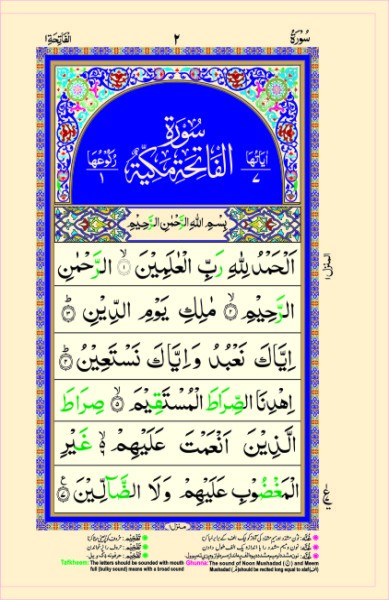 سُوْرَةُ ٢ اَلْفَاتِحَةِ ١
سُوْرَةُ
اٰيَاتُهَا ٧ الْفَاتِحَةِ مَكِّيَّةٌ رُكُوْعُهَا ١
بِسْمِ اللهِ الرَّحْمٰنِ الرَّحِيْمِ
اَلْحَمْدُ لِلّٰهِ رَبِّ الْعٰلَمِيْنَ ۙ﴿۱﴾ الرَّحْمٰنِ
الرَّحِيْمِ ۙ﴿۲﴾ مٰلِكِ يَوْمِ الدِّيْنِ ؕ﴿۳﴾
اِيَّاكَ نَعْبُدُ وَاِيَّاكَ نَسْتَعِيْنُ ؕ﴿۴﴾
اِهْدِنَا الصِّرَاطَ الْمُسْتَقِيْمَ ۙ﴿۵﴾ صِرَاطَ
الَّذِيْنَ اَنْعَمْتَ عَلَيْهِمْ ۙ۬ غَيْرِ
الْمَغْضُوْبِ عَلَيْهِمْ وَلَا الضَّآلِّيْنَ ﴿۷﴾
المنزل ١
منزل
Tafkheem: The letters should be sounded with mouth full (bulky sound) means with a broad sound
Ghunna: The sound of Noon Mushadad (نّ) and Meem Mushadad (مّ) should be recited long equal to alaf